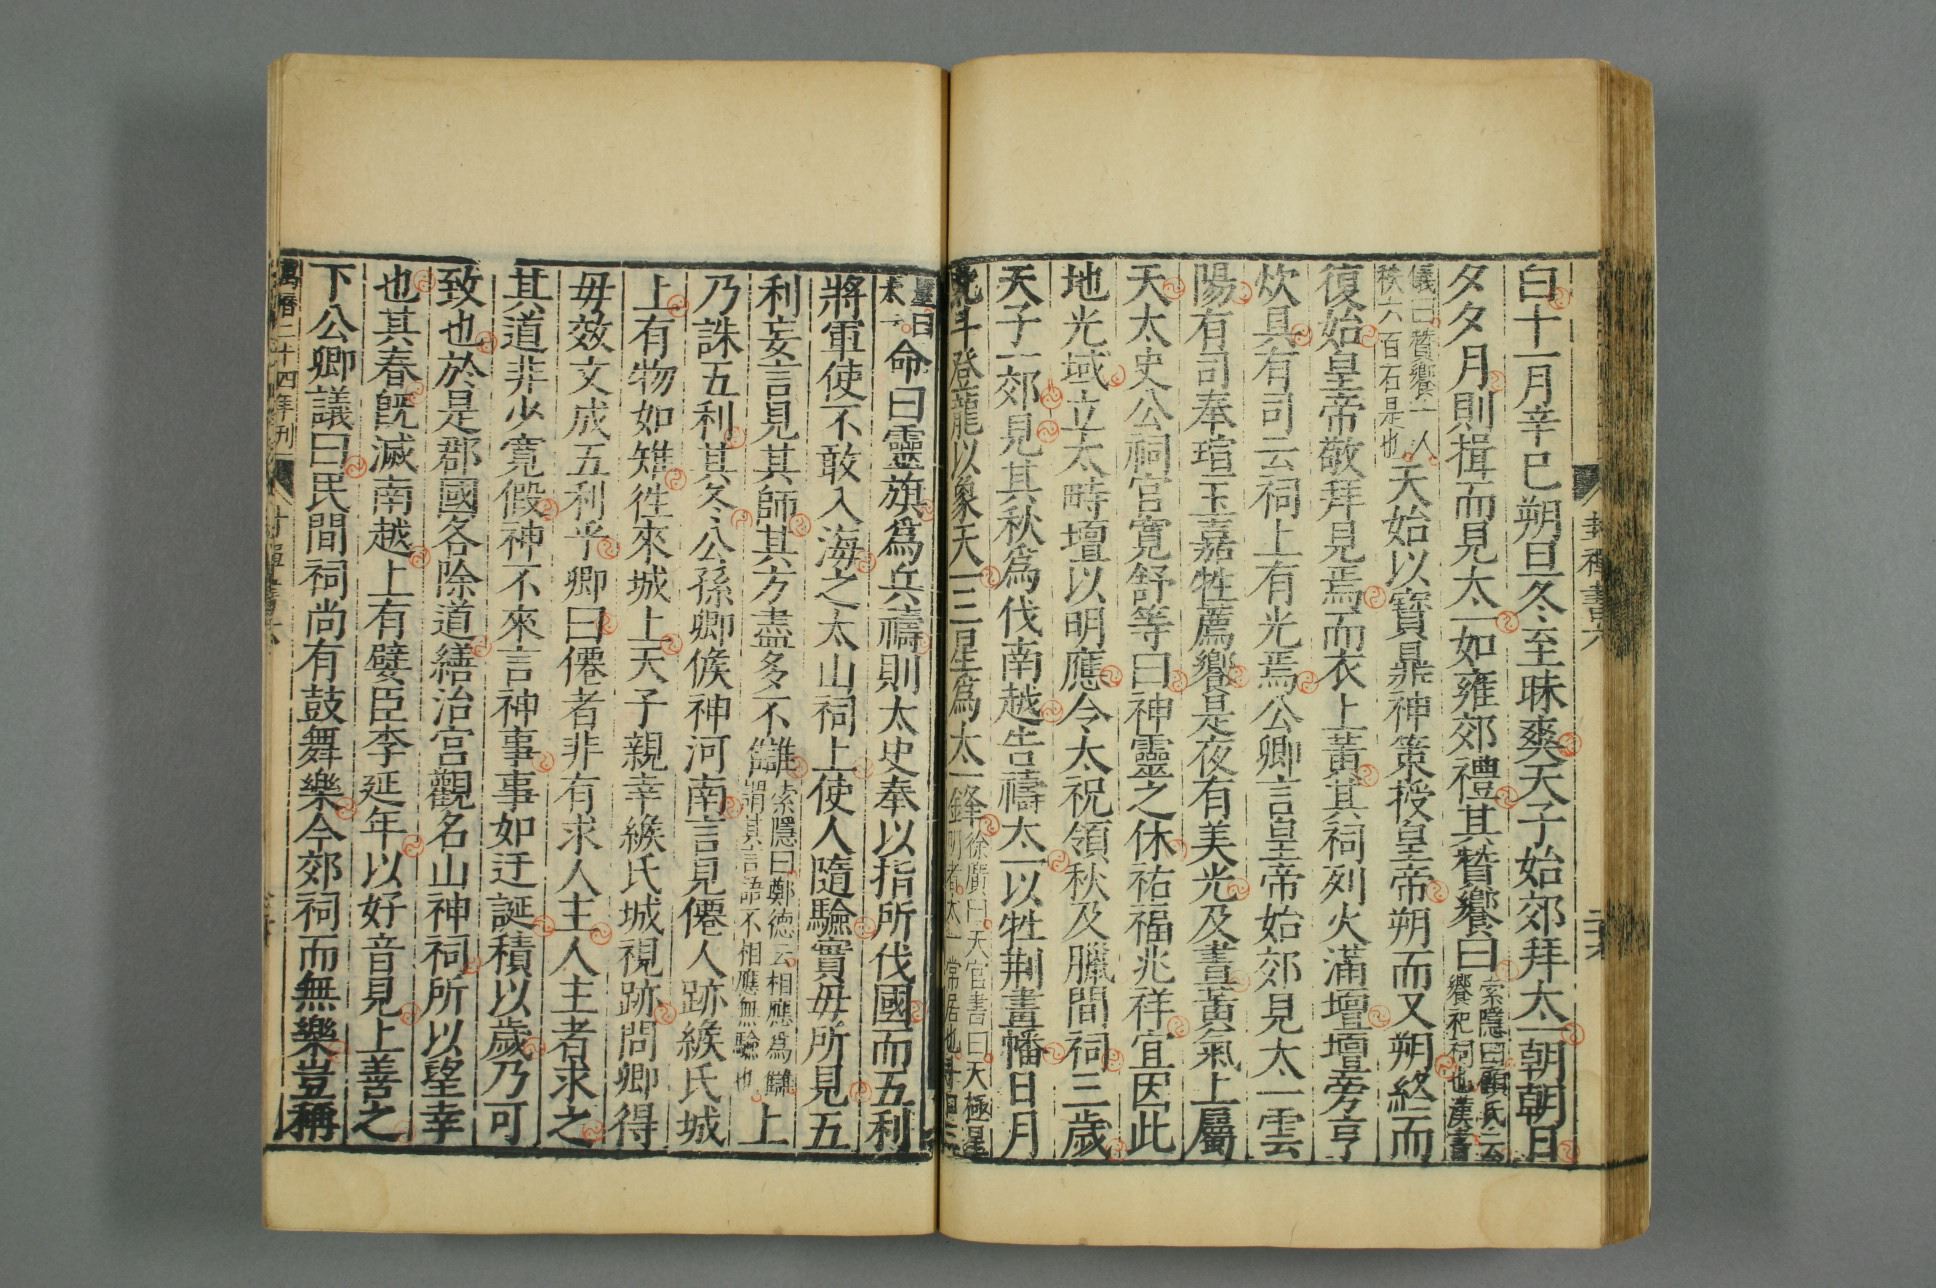 封禪書六
白十一月辛巳朔旦冬至昧爽天子始郊拜太一朝朝日
夕夕月則揖而見太一如雍郊禮其贊饗曰索隱曰顧氏云饗祀祠也漢書
儀曰贊饗一人秩六百石是也天始以寶鼎神策授皇帝朔而又朔終而
復始皇帝敬拜見焉而衣上黃其祠列火滿壇壇旁亨
炊具有司云祠上有光焉公卿言皇帝始郊見太一雲
陽有司奉瑄玉嘉牲薦饗是夜有美光及晝黃氣上屬
天太史公祠官寬舒等曰神靈之休祐福兆祥宜因此
地光域立太畤壇以明應令太祝領秋及臘間祠三歲
天子一郊見其秋爲伐南越告禱太一以牡荊畫幡日月
北斗登龍以象天一三星爲太一鋒徐廣曰天官書曰天極星明者太一常居也斗口三
星曰太一命曰靈旗爲兵禱則太史奉以指所伐國而五利
將軍使不敢入海之太山祠上使人隨驗實毋所見五
利妄言見其師其方盡多不讎索隱曰鄭德云相應爲讎讎謂其言語不相應無驗也上
乃誅五利其冬公孫卿候神河南言見僊人跡緱氏城
上有物如雉徃來城上天子親幸緱氏城視跡問卿得
毋效文成五利乎卿曰僊者非有求人主人主者求之
其道非少寬假神不來言神事事如迂誕積以歲乃可
致也於是郡國各除道繕治宮觀名山神祠所以望幸
也其春旣滅南越上有嬖臣李延年以好音見上善之
下公卿議曰民間祠尚有鼓舞樂今郊祠而無樂豈稱
萬曆二十四年刊